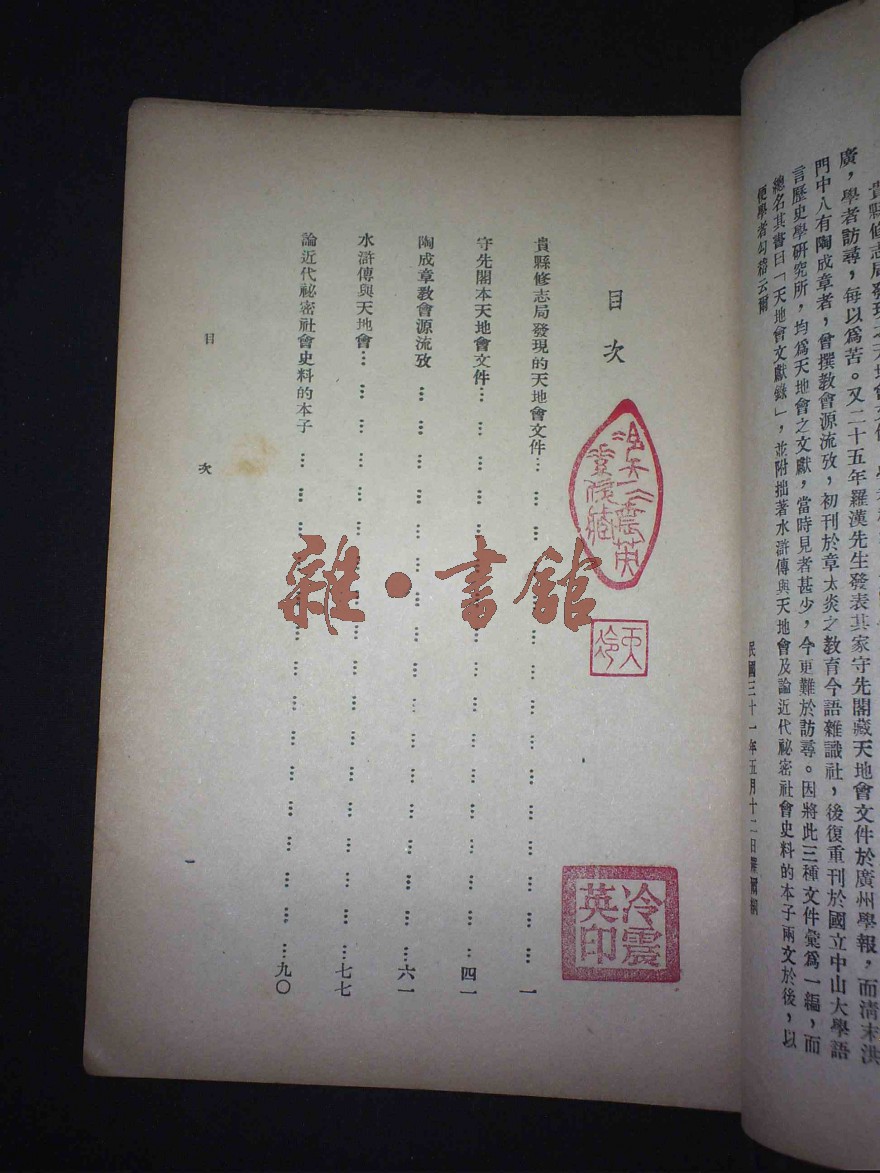 貴縣修志局發現之天地會文件
廣，學者訪尋，每以爲苦。又二十五年羅漢先生發表其家守先閣藏天地會文件於廣州學報，而清末洪
門中人有陶成章者，曾撰教會源流攷，初刊於章太炎之教育今語雜識社，後復重刊於國立中山大學語
言歷史學研究所，均爲天地會之文獻，當時見者甚少，今更難於訪尋。因將此三種文件彙爲一編，而
總名其書曰「天地會文獻錄」，並附拙著水滸傳與天地會及論近代祕密社會史料的本子兩文於後，以
便學者勾稽云爾
民國三十一年五月十二日羅爾綱
目次
貴縣修志局發現的天地會文件… … … … … … … … … 一
守先閣本天地會文件… … … … … … … … … … … 四一
陶成章教會源流攷 … … … … … … … … … … … 六一
水滸傳與天地會… … … … … … … … … … … … 七七
論近代祕密社會史料的本子 … … … … … … … … … 九〇
目 次
一
天冷
冷震英印
雜·書館